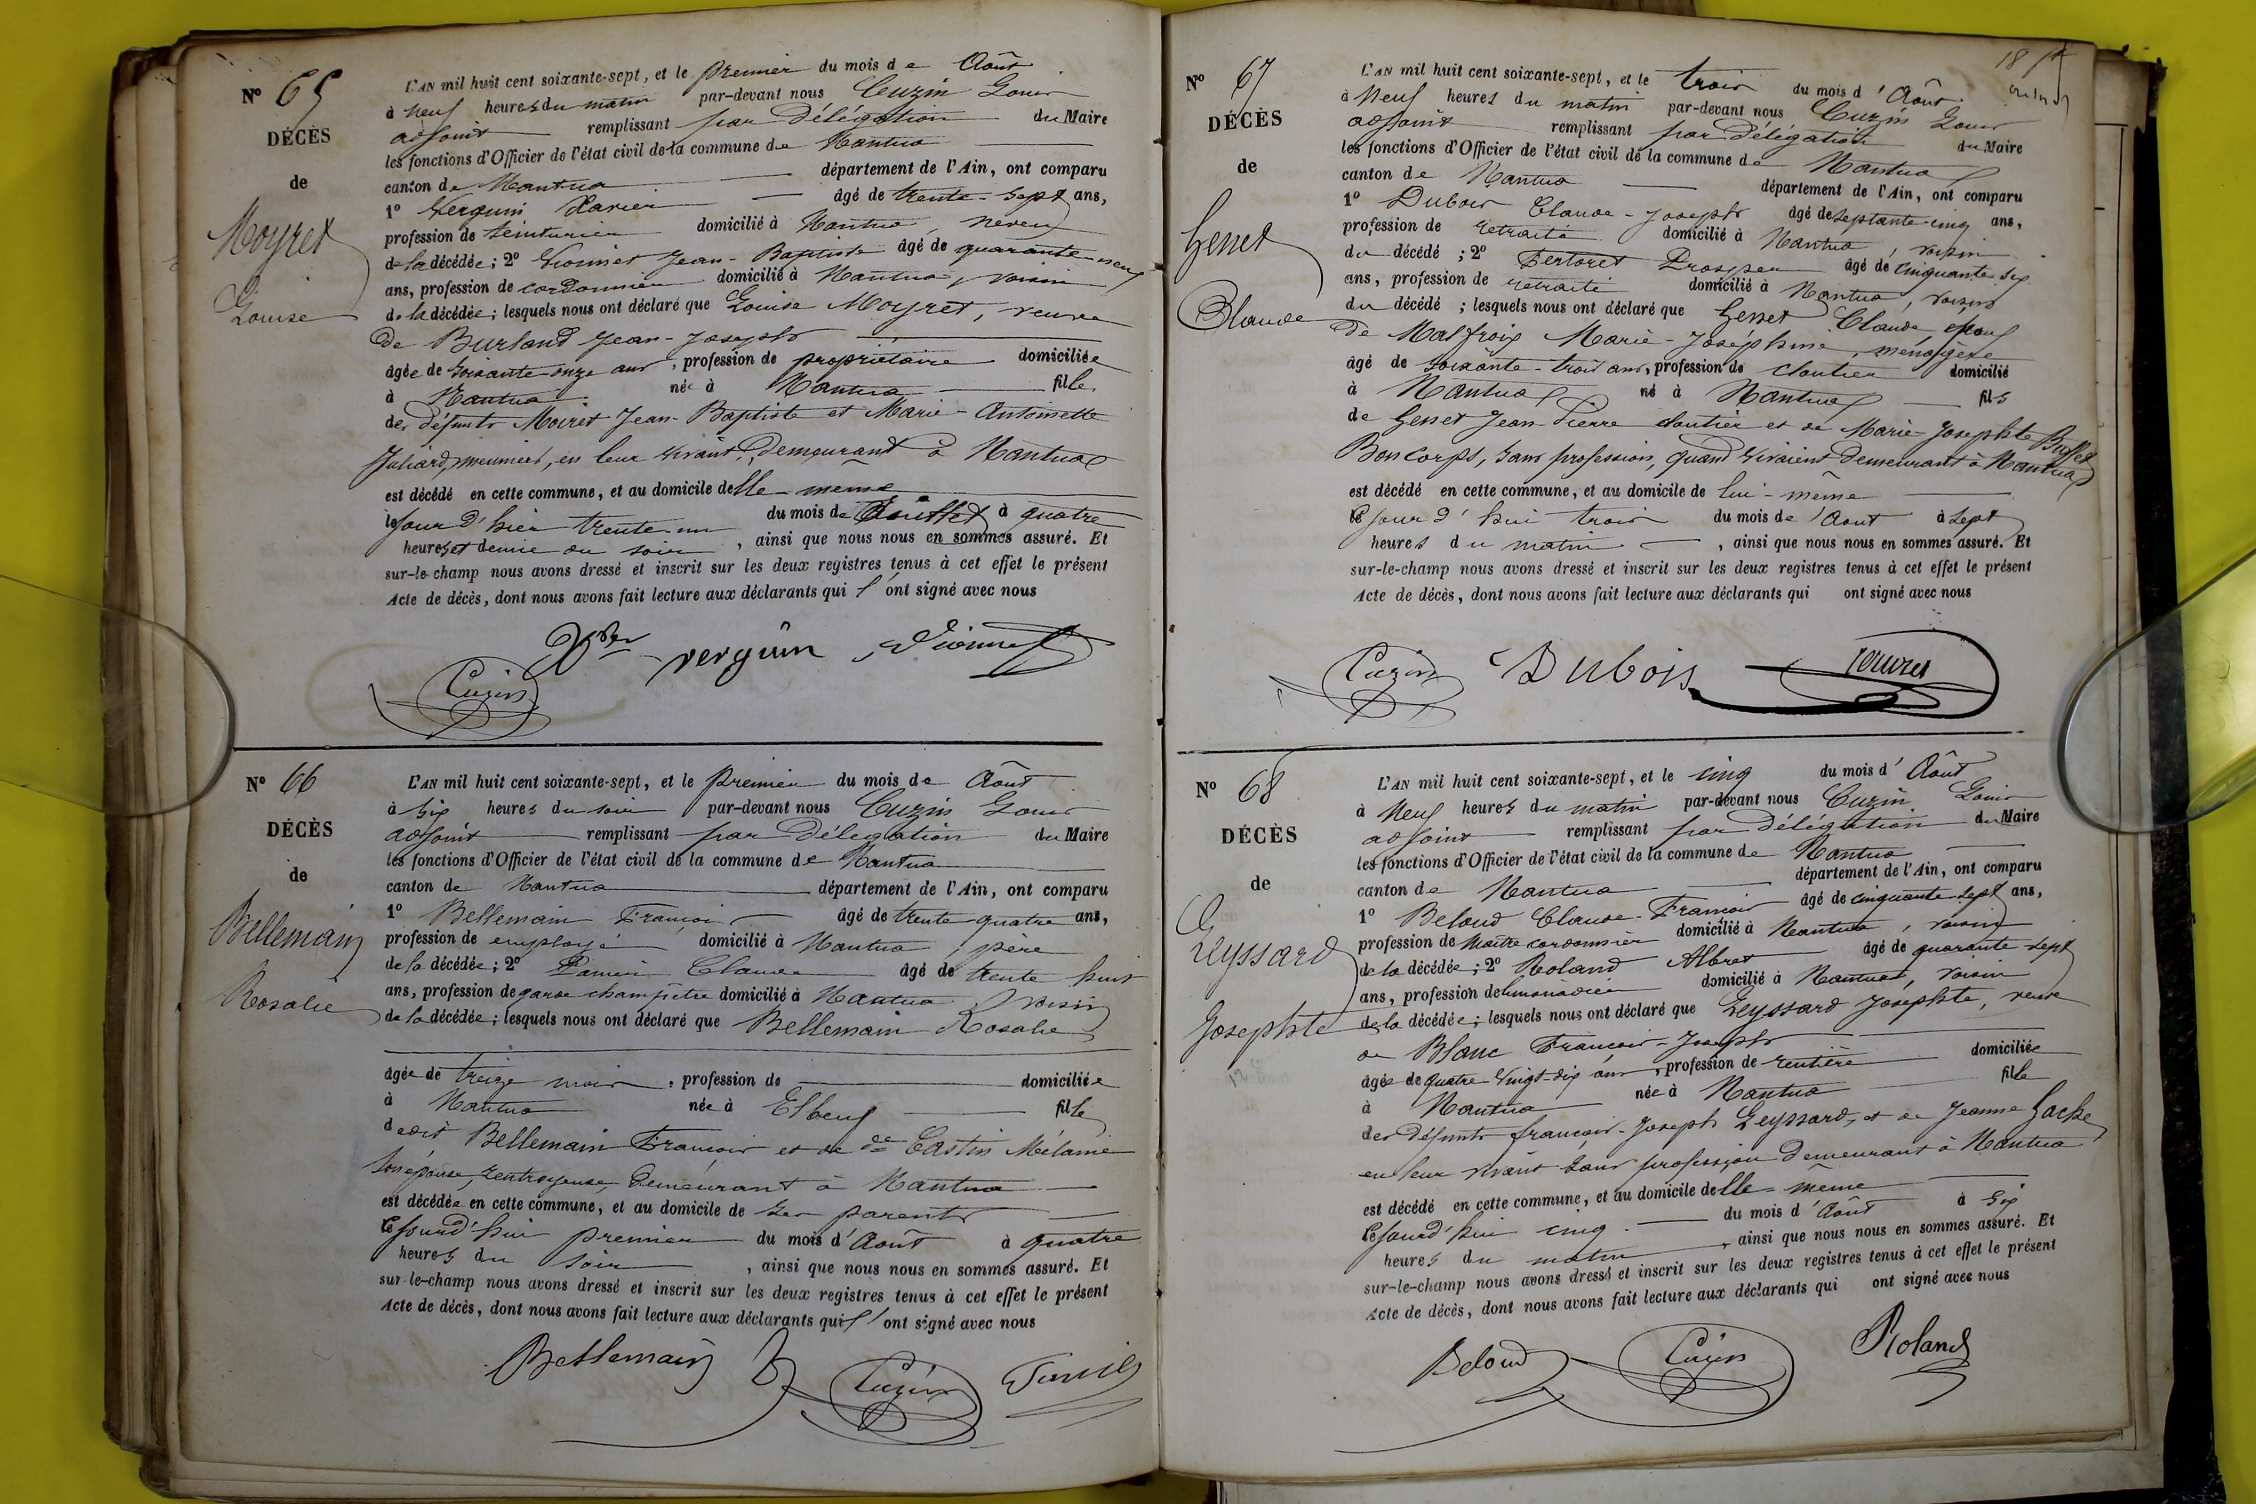 N° 65
DÉCÈS
de
Moyret
Louise
L'AN mil huit cent soixante-sept, et le premier du mois de Août
à neuf heures du matin par-devant nous Cuzin Louis
adjoint remplissant par Délégation du Maire
les fonctions d'Officier de l'état civil de la commune de Nantua
canton de Nantua département de l'Ain, ont comparu
1° Verguin Xavier âgé de trente-sept ans,
profession de teinturier domicilié à Nantua, neveu
de la décédée; 2° Vionnet Jean-Baptiste âgé de quarante-neuf
ans, profession de cordonnier domicilié à Nantua, voisin
de la décédée; lesquels nous ont déclaré que Louise Moyret, veuve
de Burland Jean-Joseph
âgée de soixante-onze ans, profession de propriétaire domiciliée
à Nantua née à Nantua fille
des défunts Moiret Jean-Baptiste et Marie-Antoinette
Juliard, meuniers, en leur vivant, demeurant à Nantua
est décédé en cette commune, et au domicile d'elle-même
le jour d'hier trente-un du mois de Juillet à quatre
heures et demie du soir, ainsi que nous nous en sommes assuré. Et
sur-le-champ nous avons dressé et inscrit sur les deux registres tenus à cet effet le présent
Acte de décès, dont nous avons fait lecture aux déclarants qui l'ont signé avec nous
Cuzin verguin Vionnet
N° 66
DÉCÈS
de
Bellemain
Rosalie
L'AN mil huit cent soixante-sept, et le premier du mois de Août
à six heures du soir par-devant nous Cuzin Louis
adjoint remplissant par Délégation du Maire
les fonctions d'Officier de l'état civil de la commune de Nantua
canton de Nantua département de l'Ain, ont comparu
1° Bellemain François âgé de trente-quatre ans,
profession de employé domicilié à Nantua, père
de la décédée; 2° Claude âgé de trente huit
ans, profession de garde champêtre domicilié à Nantua, voisin
de la décédée; lesquels nous ont déclaré que Bellemain Rosalie
âgée de treize mois, profession de domiciliée
à Nantua née à Elbeuf fille
dedit Bellemain François et de de Castin Mélanie
son épouse, rentrayeuse, demeurant à Nantua
est décédée en cette commune, et au domicile de ses parents
Cejourd'hui premier du mois d'Août à quatre
heures du soir, ainsi que nous nous en sommes assuré. Et
sur-le-champ nous avons dressé et inscrit sur les deux registres tenus à cet effet le présent
Acte de décès, dont nous avons fait lecture aux déclarants qui l'ont signé avec nous
Bellemain Cuzin
N° 67
DÉCÈS
de
Genet
Claude
L'AN mil huit cent soixante-sept, et le trois du mois d'Août
à neuf heures du matin par-devant nous Cuzin Louis
adjoint remplissant par délégation du Maire
les fonctions d'Officier de l'état civil de la commune de Nantua
canton de Nantua département de l'Ain, ont comparu
1° Dubois Claude-Joseph âgé de septante-cinq ans,
profession de retraité domicilié à Nantua, voisin
du décédé; 2° Fertoret Prosper âgé de cinquante-six
ans, profession de retraité domicilié à Nantua, voisins
du décédé; lesquels nous ont déclaré que Genet Claude, époux
de Malfroix Marie-Josephine, ménagère
âgé de soixante-trois ans, profession de cloutier domicilié
à Nantua né à Nantua fils
de Genet Jean-Pierre cloutier et de Marie-Josephte Buffet
Boncorps, sans profession, quand vivaient demeurant à Nantua
est décédé en cette commune, et au domicile de lui-même
Cejourd'hui trois du mois de Aout à sept
heures du matin, ainsi que nous nous en sommes assuré. Et
sur-le-champ nous avons dressé et inscrit sur les deux registres tenus à cet effet le présent
Acte de décès, dont nous avons fait lecture aux déclarants qui ont signé avec nous
Cuzin Dubois
N° 68
DÉCÈS
de
Leyssard
Josephte
L'AN mil huit cent soixante-sept, et le cinq du mois d'Août
à neuf heures du matin par-devant nous Cuzin Louis
adjoint remplissant par délégation du Maire
les fonctions d'Officier de l'état civil de la commune de Nantua
canton de Nantua département de l'Ain, ont comparu
1° Beloud Claude-François âgé de cinquante-sept ans,
profession de Maître cordonnier domicilié à Nantua, voisin
de la décédée; 2° Roland Albret âgé de quarante-sept
ans, profession de limonadier domicilié à Nantua, voisin
de la décédée; lesquels nous ont déclaré que Leyssard Josephte, veuve
de Blanc François-Joseph
âgée de quatre-vingt-dix ans, profession de rentière domiciliée
à Nantua née à Nantua fille
des défunts François-Joseph Leyssard, et de Jeanne Gache
en leur vivant sans profession demeurant à Nantua
est décédé en cette commune, et au domicile d'elle-même
Cejourd'hui cinq du mois d'Août à six
heures du matin, ainsi que nous nous en sommes assuré. Et
sur-le-champ nous avons dressé et inscrit sur les deux registres tenus à cet effet le présent
Acte de décès, dont nous avons fait lecture aux déclarants qui ont signé avec nous
Beloud Cuzin Roland